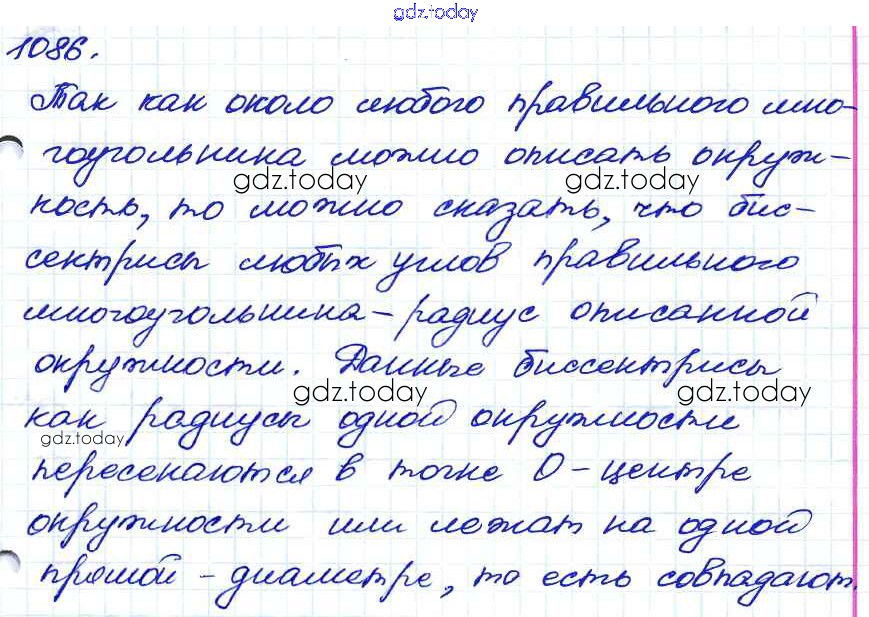 gdz.today
1086.
Так как около любого правильного мно-
гоугольника можно описать окруж-
gdz.today gdz.today
ность, то можно сказать, что бис-
сектрисы любых углов правильного
многоугольника – радиус описанной
окружности. Данные биссектрисы
gdz.today gdz.today
как радиусы одной окружности
gdz.today
пересекаются в точке О – центре
окружности или лежат на одной
прямой – диаметре, то есть совпадают.